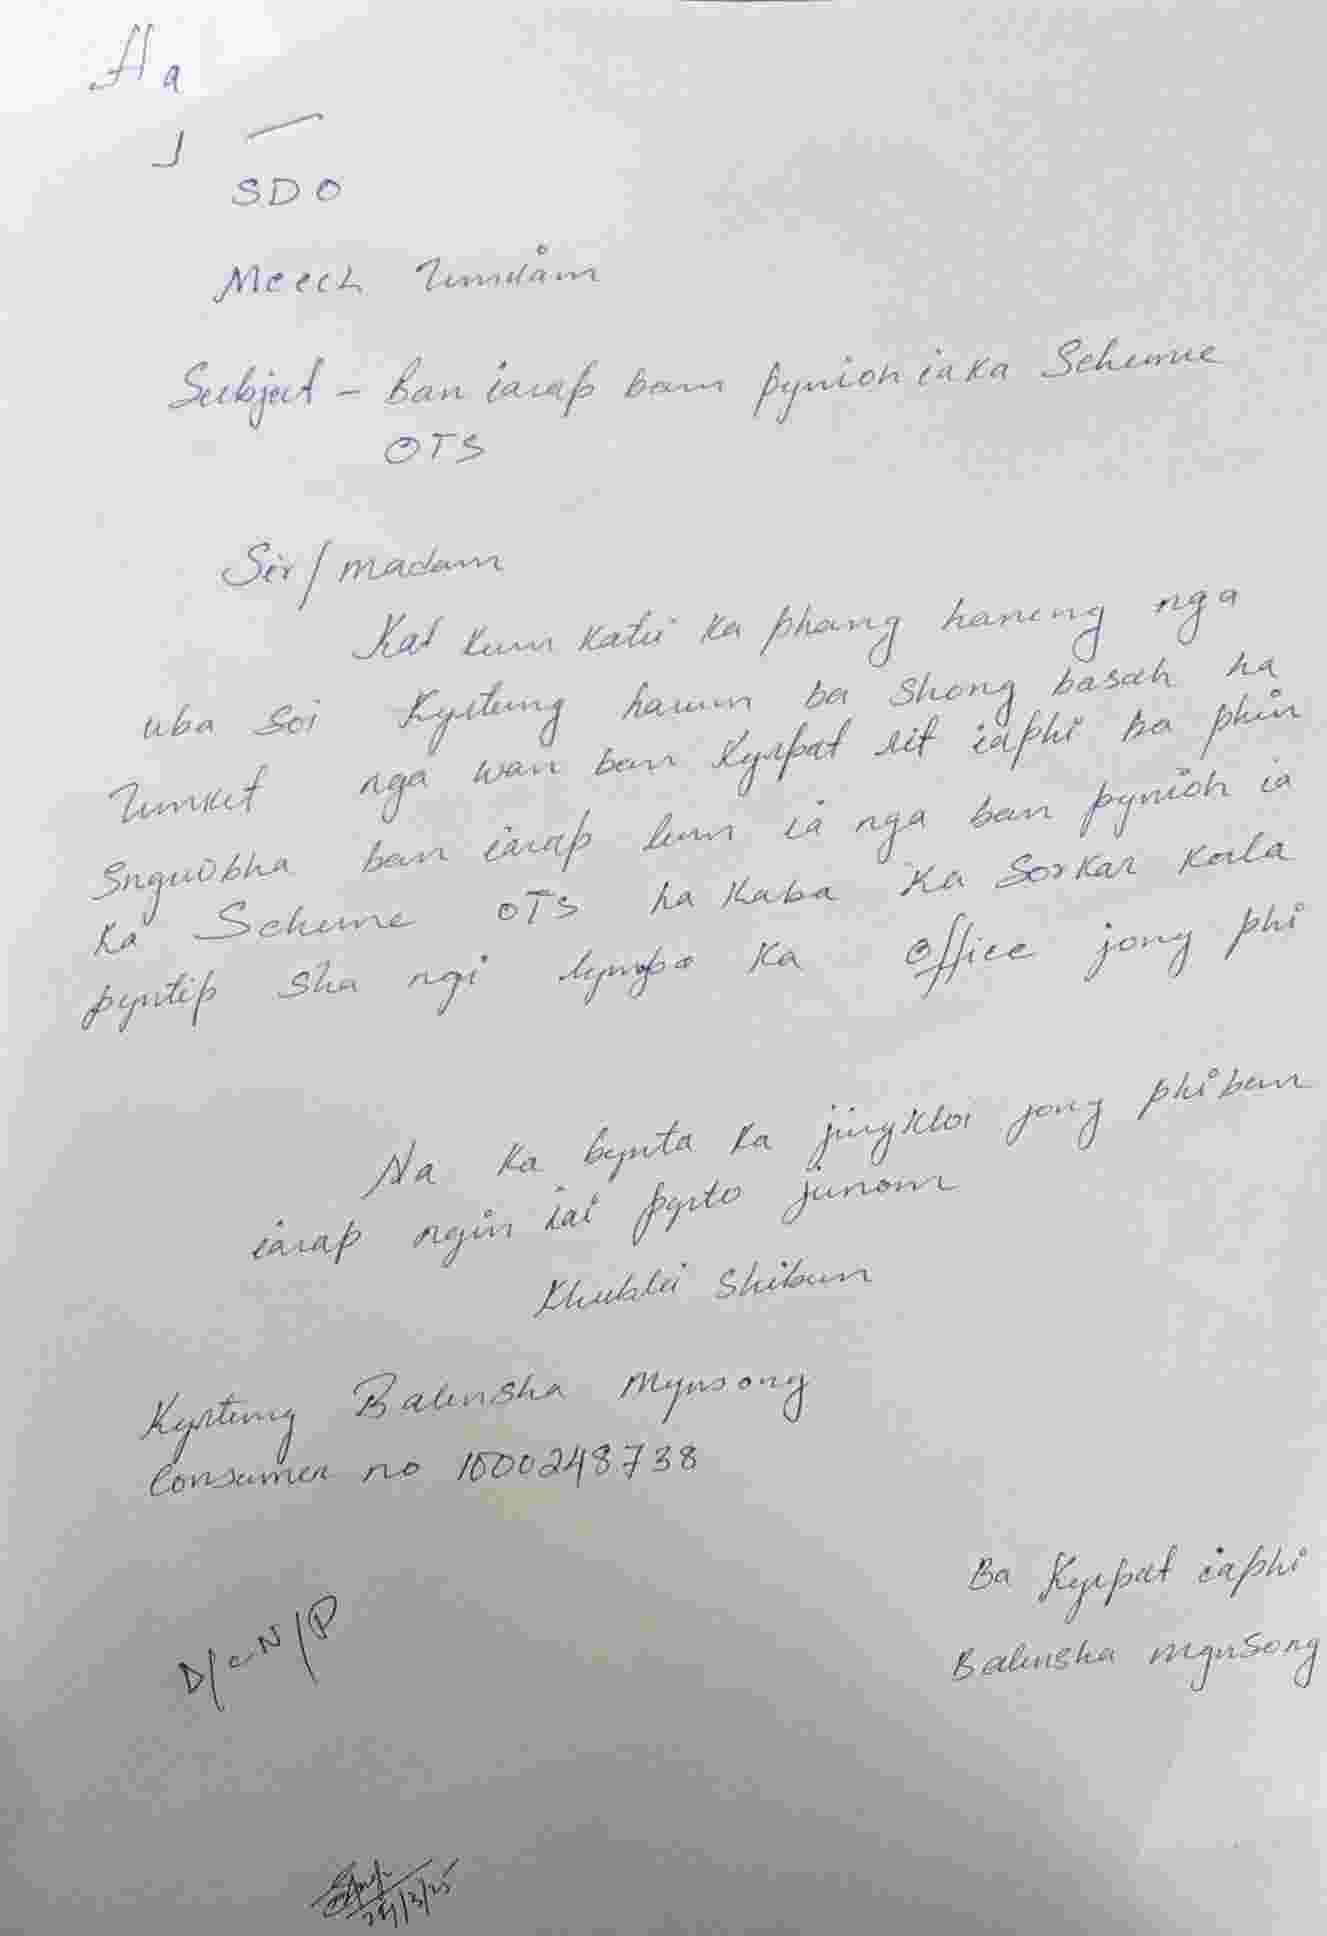 Ha
SDO
Meecl Umdam
Subject - Ban iarap ban pynioh ia ka Scheme
OTS
Sir/madam
Kat kum katei ka phang haneng nga
uba soi Kyrteng harum ba shong basah ha
Umket nga wan ban Kyrpat eit iaphi ba phin
Sngwbha ban iarap lem ia nga ban pynioh ia
ka Scheme OTS ha kaba ka Sorkar kala
pyntip sha ngi lympa ka office jong phi
Na ka bynta ka jingkloi jong phi ban
iarap ngin iai pyrto junom
Khublei Shibun
Kyrteng Balensha Mynsong
Consumer no 1000248738
Ba Kyrpat iaphi
Balensha Mynsong
D/C-N/P
24/3/25